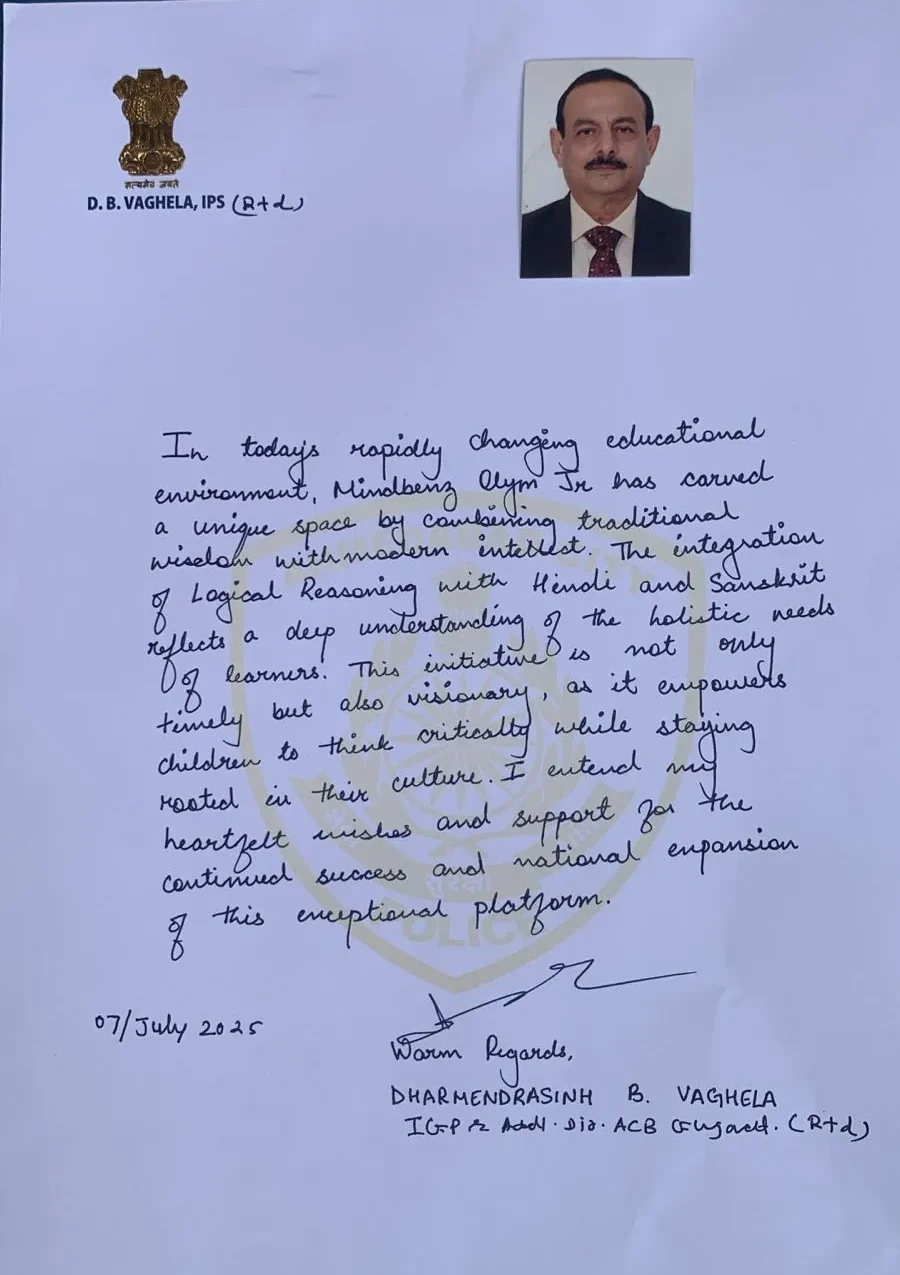 सत्यमेव जयते
D. B. VAGHELA, IPS (Rtd)
In today's rapidly changing educational
environment, Mindbenz Olym Jr has carved
a unique space by combining traditional
wisdom with modern intellect. The integration
of Logical Reasoning with Hindi and Sanskrit
reflects a deep understanding of the holistic needs
of learners. This initiative is not only
timely but also visionary, as it empowers
children to think critically while staying
rooted in their culture. I extend my
heartfelt wishes and support for the
continued success and national expansion
of this exceptional platform.
07/July 2025
Warm Regards,
DHARMENDRASINH B. VAGHELA
IGP & Addl. Dir. ACB Gujarat. (Rtd)
सुरक्षा
POLICE